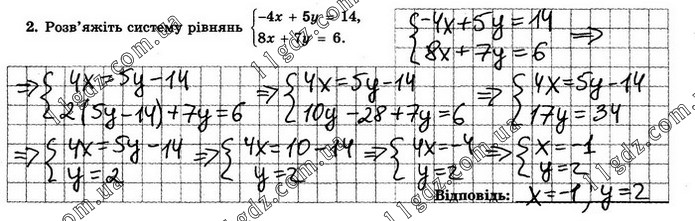 2. Розв'яжіть систему рівнянь { −4x + 5y = 14, 8x + 7y = 6.
{ -4x+5y=14 8x+7y=6 ⇒
⇒ { 4x=5y-14 2(5y-14)+7y=6 ⇒ { 4x=5y-14 10y-28+7y=6 ⇒ { 4x=5y-14 17y=34
⇒ { 4x=5y-14 y=2 ⇒ { 4x=10-14 y=2 ⇒ { 4x=-4 y=2 ⇒ { x=-1 y=2
Відповідь: x=-1; y=2
11gdz.com.ua